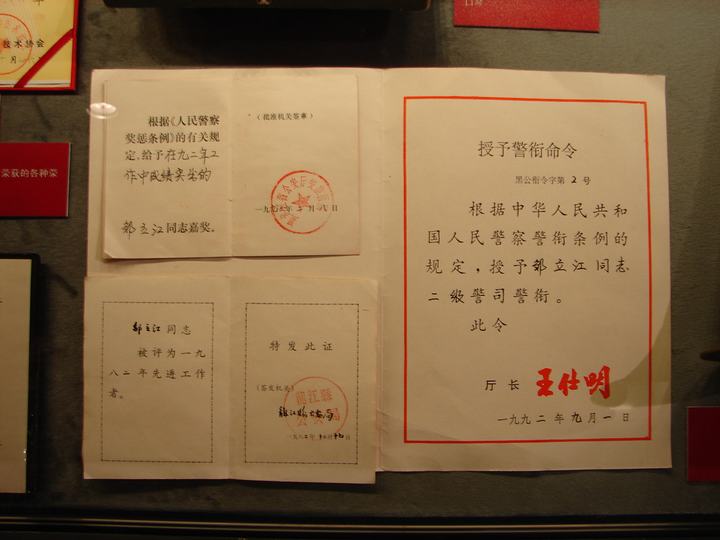 技术协会
荣获的各种荣
根据《人民警察
奖惩条例》的有关规
定，给予在九二年工
作中成绩突出的
邹立江同志嘉奖。
（批准机关签章）
邹立江同志
被评为一九
八二年先进工作
者。
特发此证
（签发机关）
龍江縣
公安局
龙江县公安局
授予警衔命令
黑公衔令字第 2 号
根据中华人民共和
国人民警察警衔条例的
规定，授予邹立江同志
二级警司警衔。
此令
厅长 王仕明
一九九二年九月一日